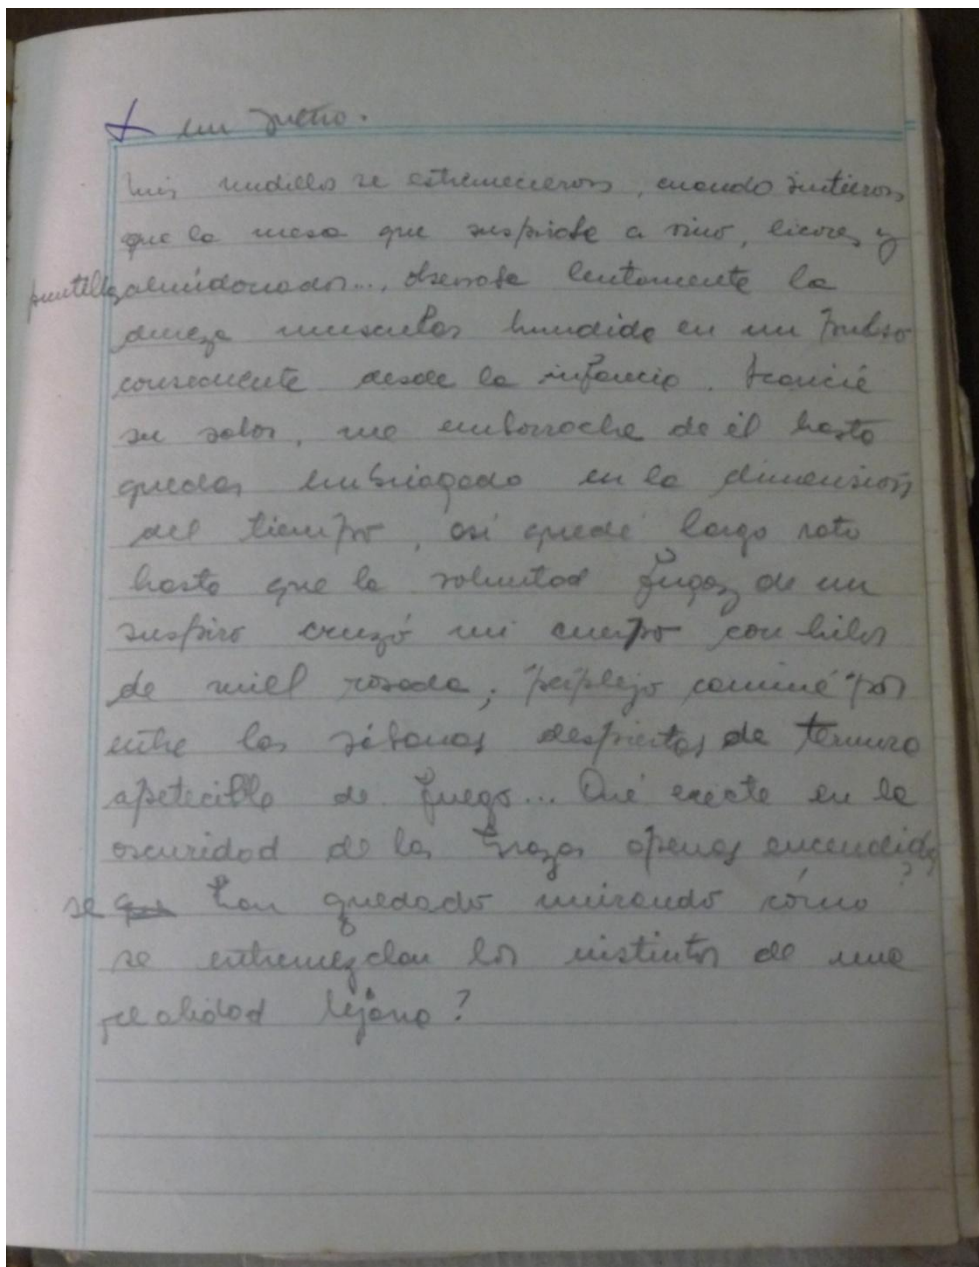 + un
Mis nudillos se estremecieron, cuando sintieron
que la mesa que suspirase a vino, licores y
puntillas almidonados...., lentamente la
dureza muscular hundida en un pulso
consecuente desde la infancia.
su sabor, me emborrache de él hasta
quedar embriagado en la dimensión
del tiempo, así quedé largo rato
hasta que la voluntad fugaz de un
suspiro cruzó mi cuerpo con hilos
de miel rosada; perplejo caminé por
entre las sábanas despiertas de ternura
apetecible de fuego... Qué existe en la
oscuridad de las brazas apenas encendidas
se han quedado mirando cómo ?
se entremezclan los instintos de una
realidad lejana?